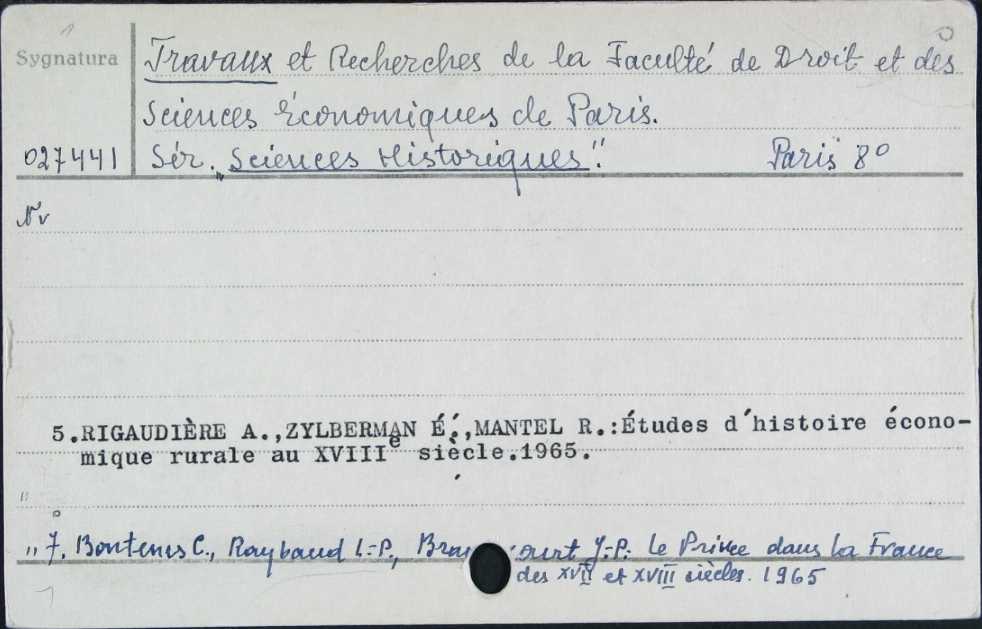 Sygnatura
Travaux et Recherches de la Faculté de Droit et des
Sciences Économiques de Paris.
027441 Sér. „Sciences Historiques". Paris 8°
Nr
5.RIGAUDIÈRE A.,ZYLBERMAN É.,MANTEL R.:Études d'histoire écono-
mique rurale au XVIIIe siècle.1965.
„ 7. Bontems C., Raybaud L.-P., Bran court J.-P. Le Prince dans la France
des XVII et XVIII siècles. 1965